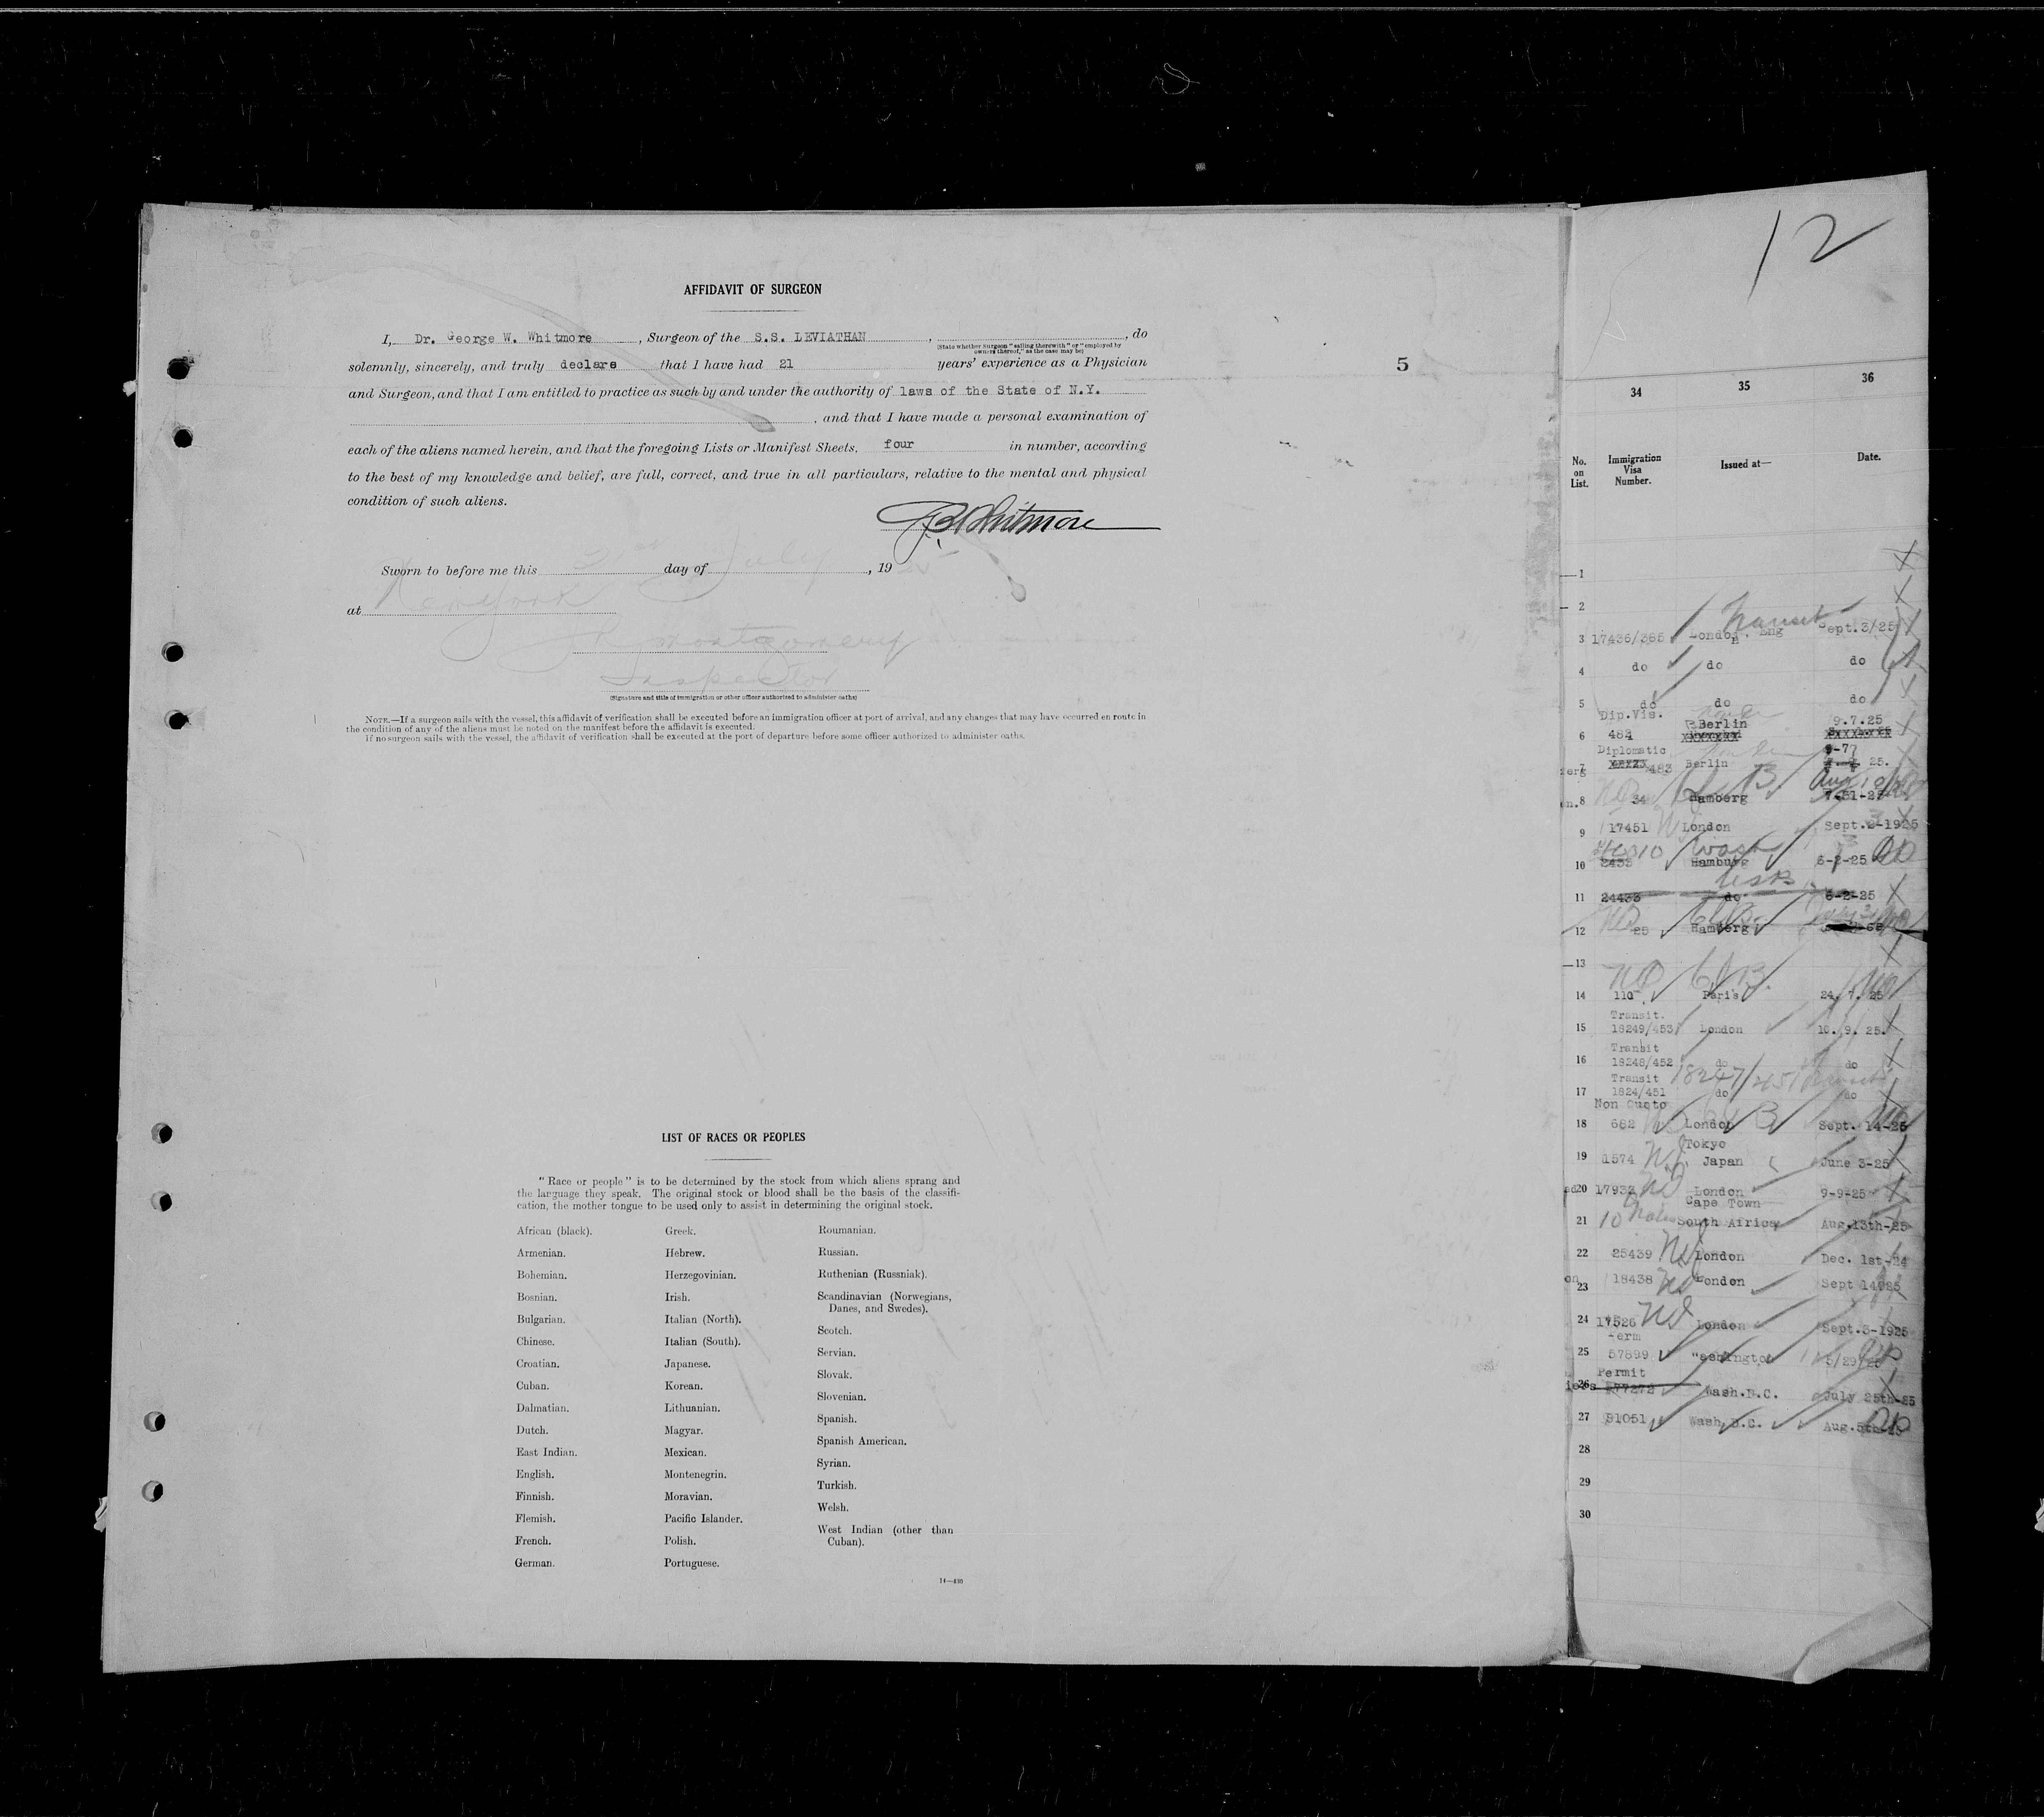 AFFIDAVIT OF SURGEON
I, Dr. George W. Whitmore, Surgeon of the S.S. LEVIATHAN, , do
(State whether Surgeon "sailing therewith" or "employed by owners thereof," as the case may be)
solemnly, sincerely, and truly declare that I have had 21 years' experience as a Physician
and Surgeon, and that I am entitled to practice as such by and under the authority of laws of the State of N.Y.
, and that I have made a personal examination of
each of the aliens named herein, and that the foregoing Lists or Manifest Sheets, four in number, according
to the best of my knowledge and belief, are full, correct, and true in all particulars, relative to the mental and physical
condition of such aliens.
Whitmore
Sworn to before me this day of July, 19
at New York
Montgomery
Inspector
(Signature and title of immigration or other officer authorized to administer oaths)
NOTE.—If a surgeon sails with the vessel, this affidavit of verification shall be executed before an immigration officer at port of arrival, and any changes that may have occurred en route in
the condition of any of the aliens must be noted on the manifest before the affidavit is executed.
If no surgeon sails with the vessel, the affidavit of verification shall be executed at the port of departure before some officer authorized to administer oaths.
5
LIST OF RACES OR PEOPLES
"Race or people" is to be determined by the stock from which aliens sprang and
the language they speak. The original stock or blood shall be the basis of the classifi-
cation, the mother tongue to be used only to assist in determining the original stock.
African (black).
Armenian.
Bohemian.
Bosnian.
Bulgarian.
Chinese.
Croatian.
Cuban.
Dalmatian.
Dutch.
East Indian.
English.
Finnish.
Flemish.
French.
German.
Greek.
Hebrew.
Herzegovinian.
Irish.
Italian (North).
Italian (South).
Japanese.
Korean.
Lithuanian.
Magyar.
Mexican.
Montenegrin.
Moravian.
Pacific Islander.
Polish.
Portuguese.
Roumanian.
Russian.
Ruthenian (Russniak).
Scandinavian (Norwegians,
Danes, and Swedes).
Scotch.
Servian.
Slovak.
Slovenian.
Spanish.
Spanish American.
Syrian.
Turkish.
Welsh.
West Indian (other than
Cuban).
14—430
12
34 35 36
No. on List. Immigration Visa Number. Issued at— Date.
1
2
Transit
3 17436/385 London, Eng Sept.3/25
4 do do do
5 do do do
Dip.Vis. Berlin 9.7.25
6 482
Diplomatic
7 483 Berlin 25.
Aug 10
8 34 Hamberg
9 17451 London Sept. -1925
Wash
10 2433 Hamburg 6-2-25
11 24433 do 6-2-25
12 25 Hamberg
13
14 110 Paris 24. 7. 25
Transit.
15 18249/453 London 10. 9. 25.
Transit
16 18248/452 do do
Transit 18247/451
17 1824/451 do do
Non Quoto
18 682 London Sept. 14-25
Tokyo
19 1574 Japan June 3-25
20 17933 London 9-9-25
Cape Town
21 10 South Africa Aug.13th-25
22 25439 London Dec. 1st-24
23 18438 London Sept 14
24 17526 London Sept.3-1925
25 57899 5/29/25
Permit
26 Wash.D.C. July 25th-25
27 91051 Wash, D.C. Aug.5th-25
28
29
30